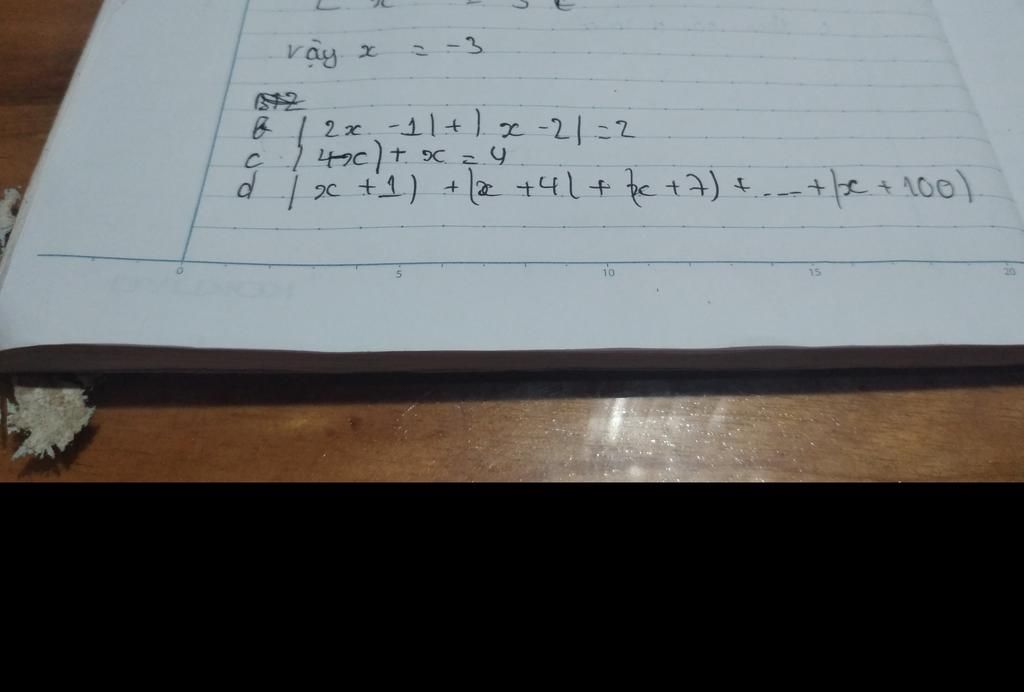 vậy x = -3
b | 2x - 1| + | x - 2| = 2
c | 4-x| + x = 4
d | x + 1| + |x + 4| + |x + 7| + .... + |x + 100|
0 5 10 15 20